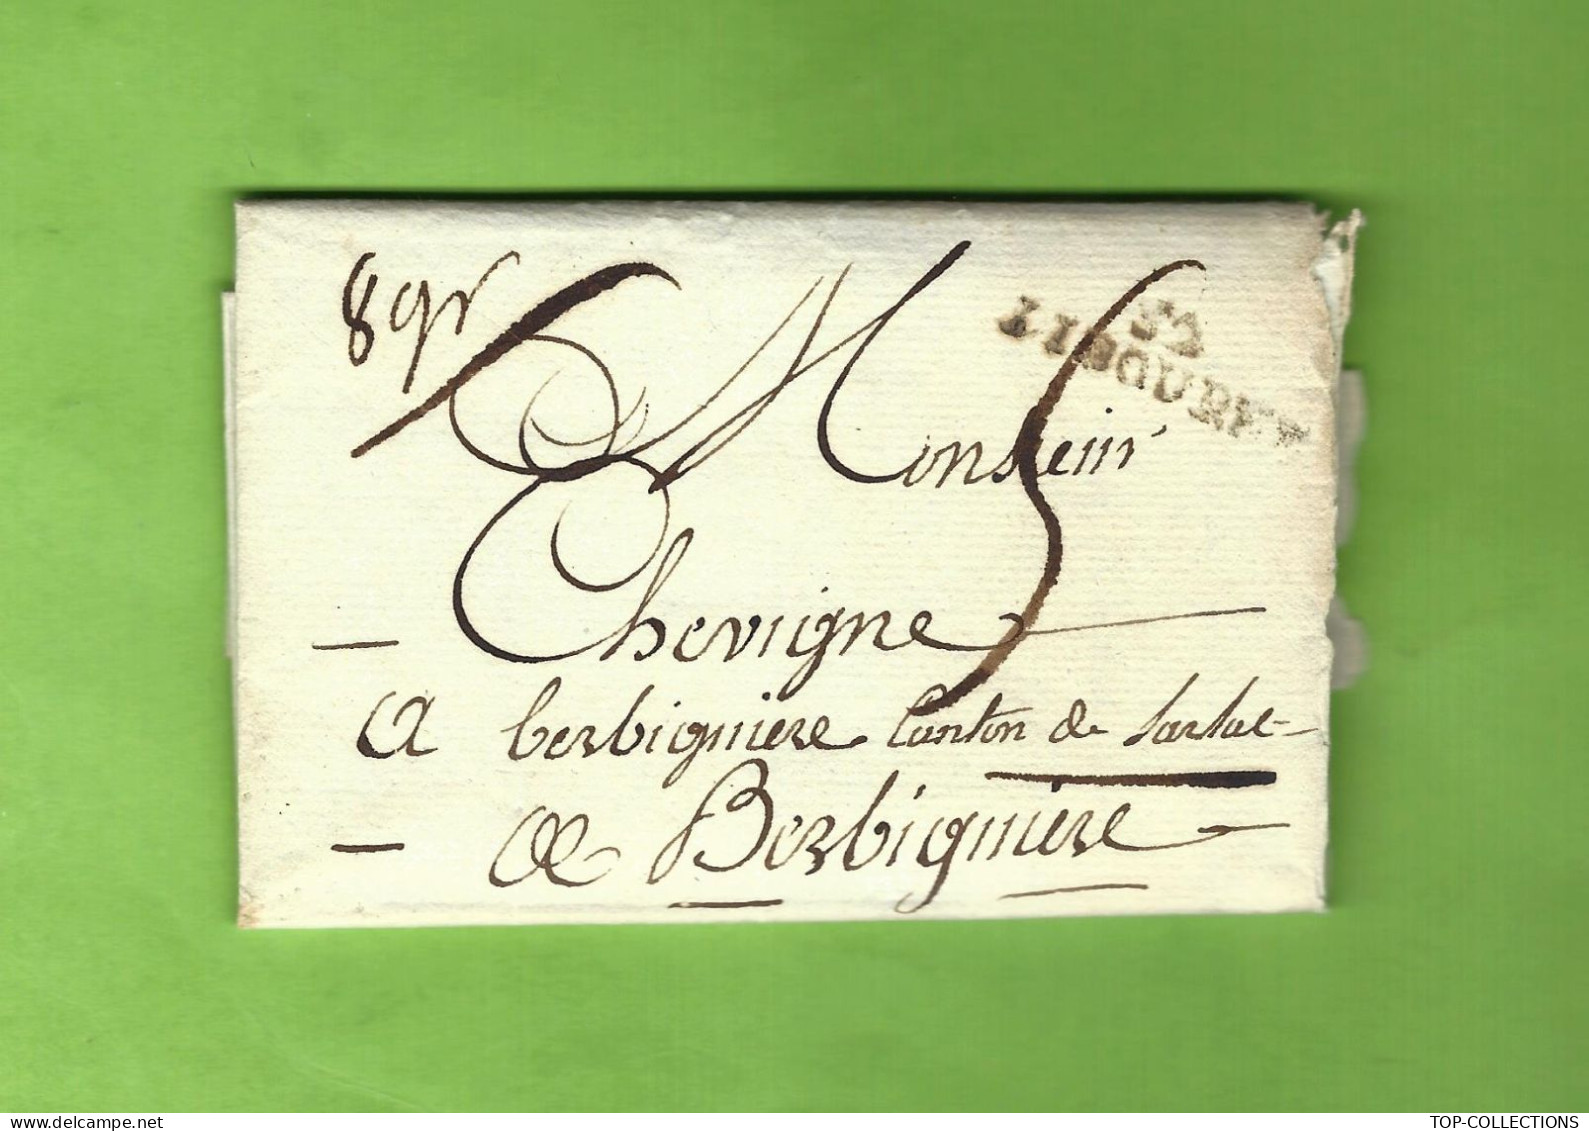 8 gr
5
32
LIBOURNE
Monsieur
Chevigne
A berbiguiere Canton de Sarlat
de Berbiguiere
www.delcampe.net
TOP-COLLECTIONS